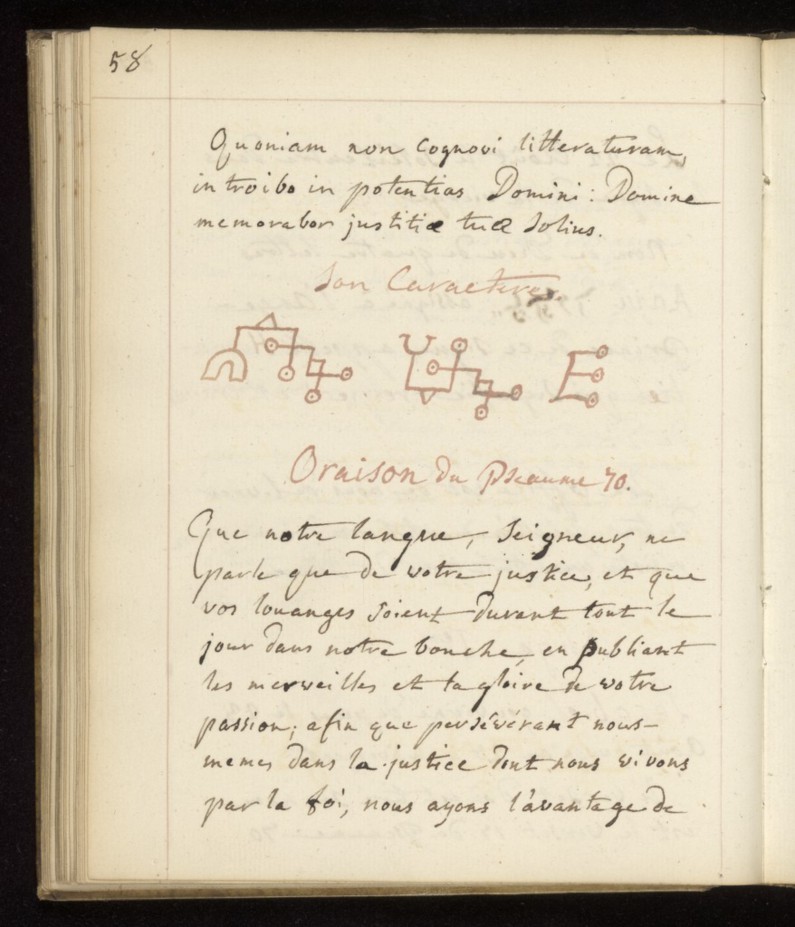 58
Quoniam non Cognovi litteraturam,
introibo in potentias Domini: Domine
memorabor justitiæ tuæ Solius.
Son Caractere.
Oraison du Pseaume 70.
Que notre langue, Seigneur, ne
parle que de votre justice, et que
vos louanges soient durant tout le
jour dans notre bouche, en publiant
les merveilles et la gloire de votre
passion; afin que persévérant nous-
memes dans la justice dont nous vivons
par la foi, nous ayons l'avantage de